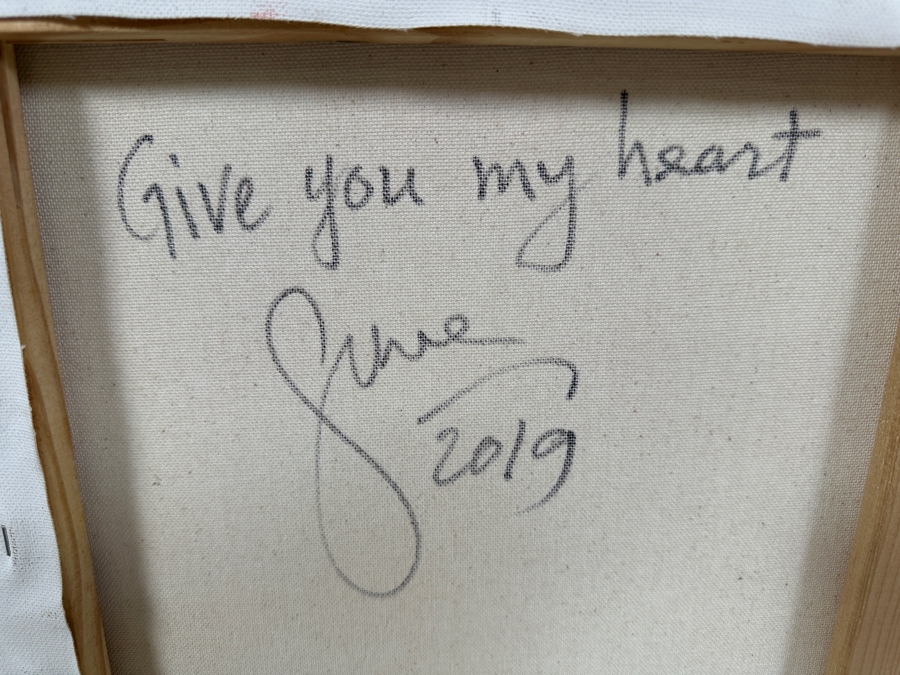 Give you my heart
June
2019